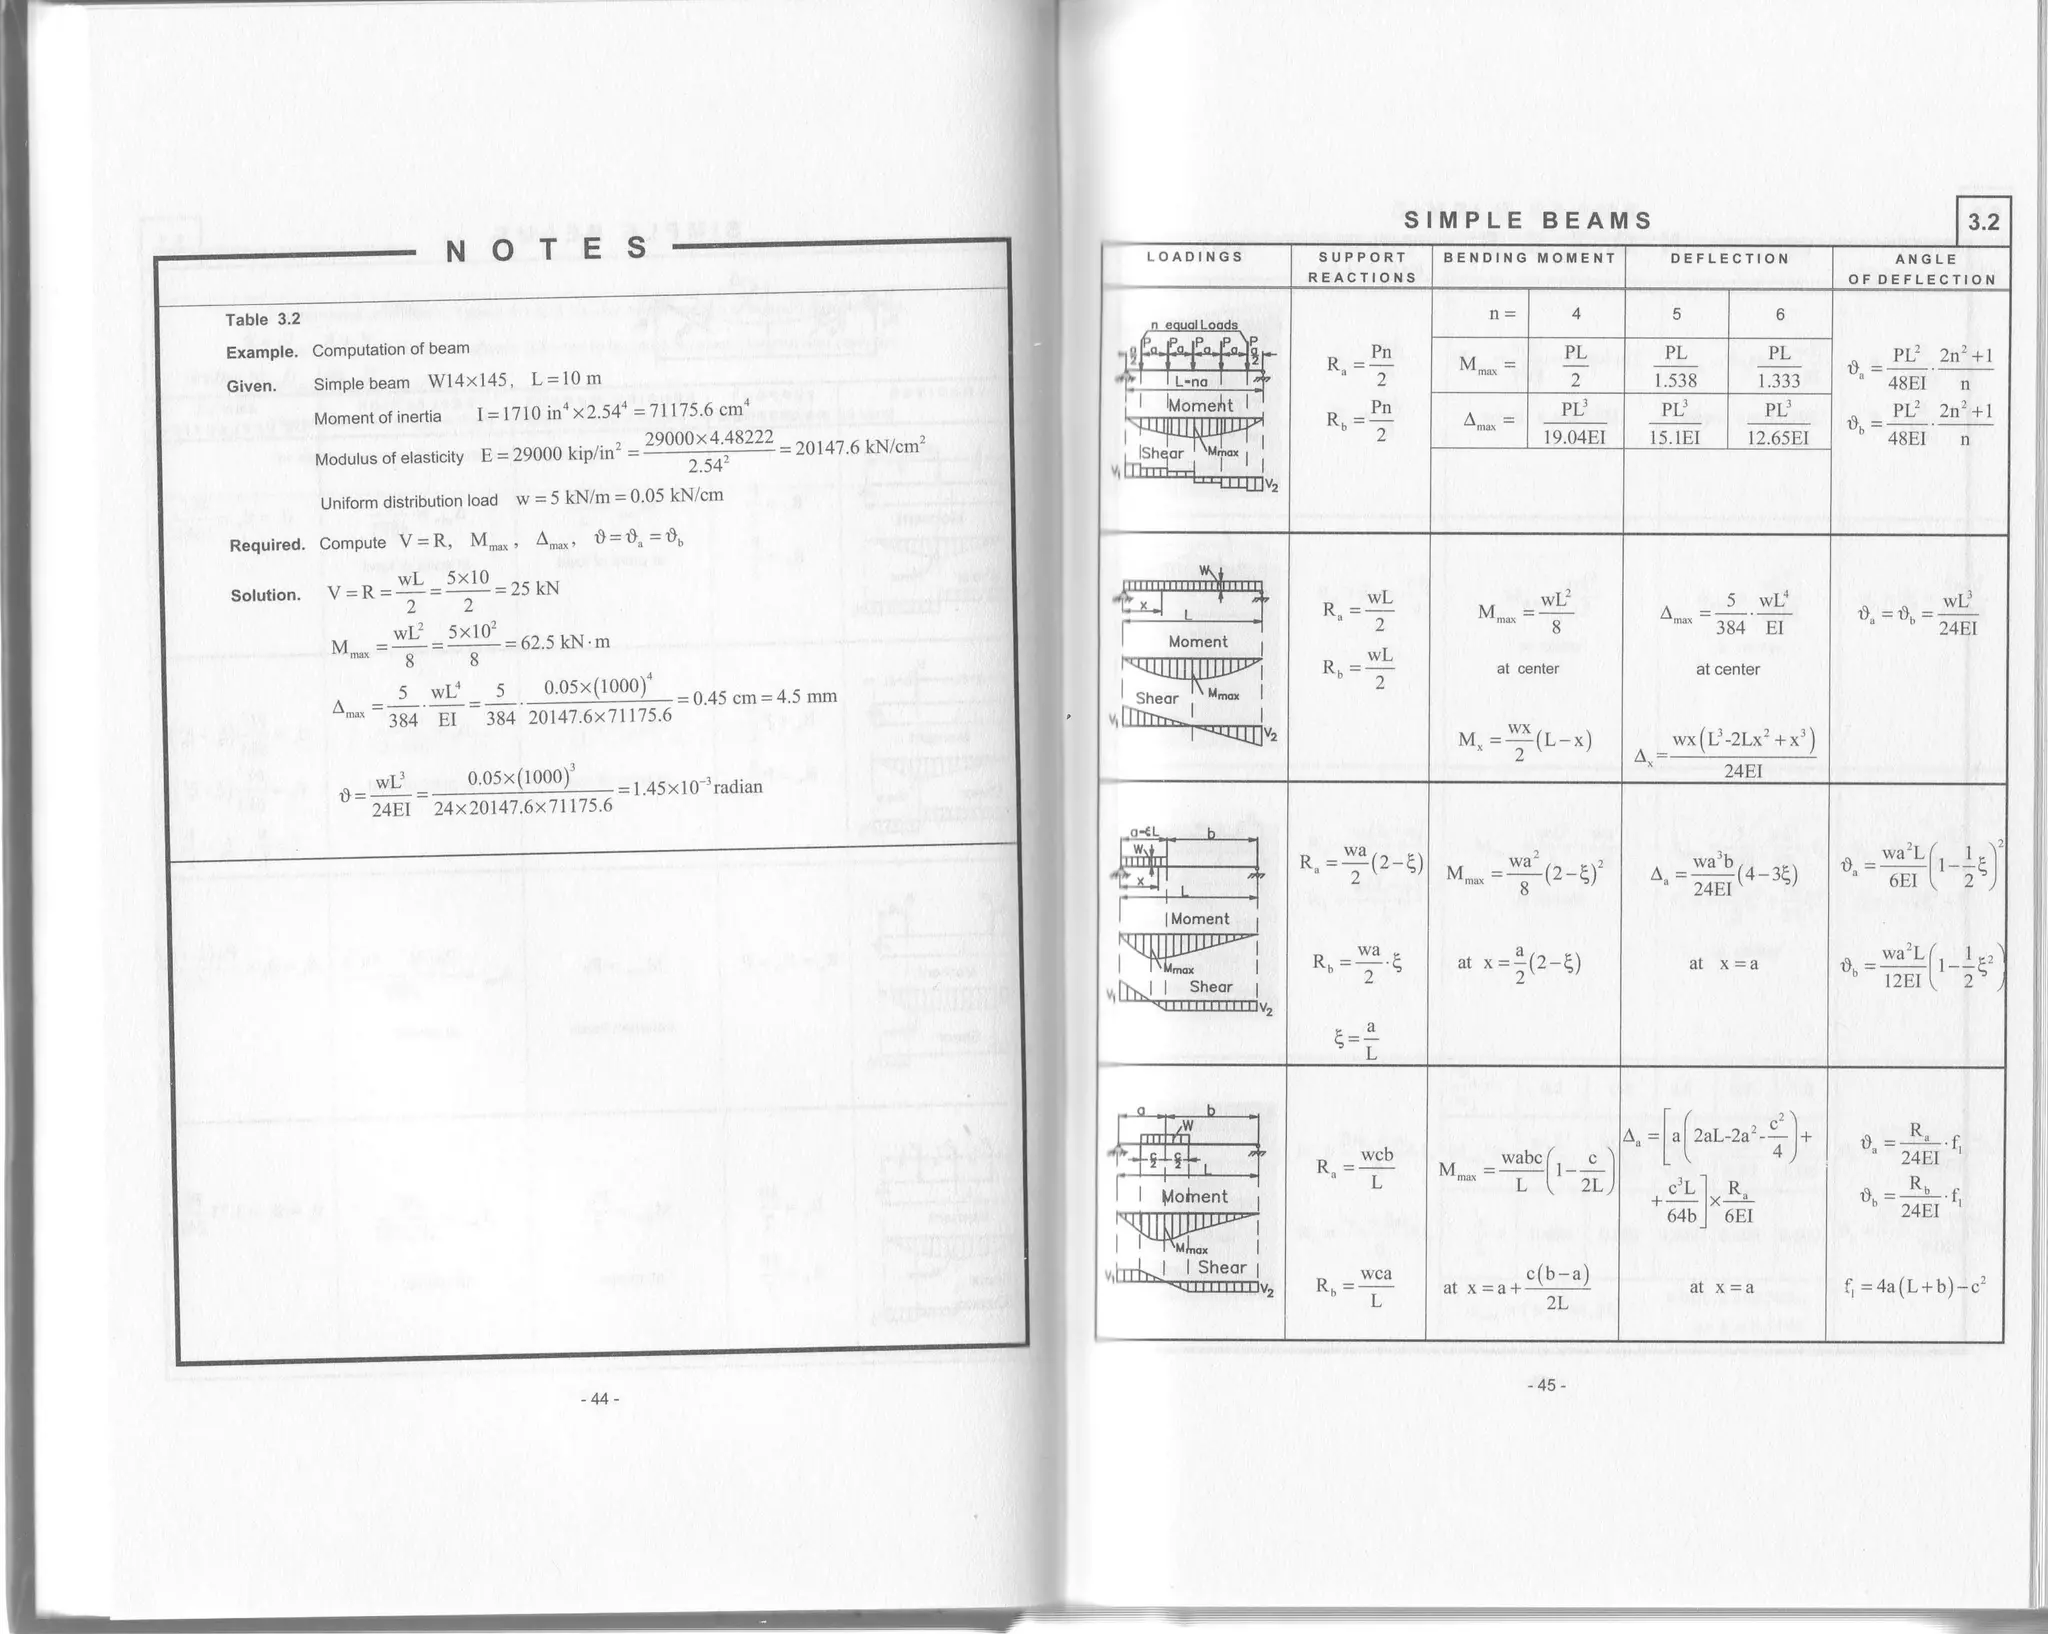 N O T E S
Table 3.2
Example. Computation of beam
Given. Simple beam W14x145, L=10 m
Moment of inertia I=1710 in⁴x2.54⁴=71175.6 cm⁴
Modulus of elasticity E=29000 kip/in²=29000x4.48222/2.54²=20147.6 kN/cm²
Uniform distribution load w=5 kN/m=0.05 kN/cm
Required. Compute V=R, Mmax, Δmax, ϑ=ϑa=ϑb
Solution. V=R=wL/2=5x10/2=25 kN
Mmax=wL²/8=5x10²/8=62.5 kN·m
Δmax=5/384·wL⁴/EI=5/384·0.05x(1000)⁴/20147.6x71175.6=0.45 cm=4.5 mm
ϑ=wL³/24EI=0.05x(1000)³/24x20147.6x71175.6=1.45x10⁻³radian
- 44 -
SIMPLE BEAMS
3.2
LOADINGS
SUPPORT REACTIONS
BENDING MOMENT
DEFLECTION
ANGLE OF DEFLECTION
n equal Loads
P P P P P
a/2 a a a a a/2
L=na
Moment
Mmax
Shear
V₁ V₂
Ra=Pn/2
Rb=Pn/2
n= 4 5 6
Mmax= PL/2 PL/1.538 PL/1.333
Δmax= PL³/19.04EI PL³/15.1EI PL³/12.65EI
ϑa=PL²/48EI·2n²+1/n
ϑb=PL²/48EI·2n²+1/n
W
x
L
Moment
Mmax
Shear
V₁ V₂
Ra=wL/2
Rb=wL/2
Mmax=wL²/8
at center
Mx=wx/2(L-x)
Δmax=5/384·wL⁴/EI
at center
Δx=wx(L³-2Lx²+x³)/24EI
ϑa=ϑb=wL³/24EI
a=ξL b
W
x
L
Moment
Mmax
Shear
V₁ V₂
Ra=wa/2(2-ξ)
Rb=wa/2·ξ
ξ=a/L
Mmax=wa²/8(2-ξ)²
at x=a/2(2-ξ)
Δa=wa³b/24EI(4-3ξ)
at x=a
ϑa=wa²L/6EI(1-1/2ξ)²
ϑb=wa²L/12EI(1-1/2ξ²)
a b
W
c/2 c/2
L
Moment
Mmax
Shear
V₁ V₂
Ra=wcb/L
Rb=wca/L
Mmax=wabc/L(1-c/2L)
at x=a+c(b-a)/2L
Δa=[a(2aL-2a²-c²/4)+
+c³L/64b]xRa/6EI
at x=a
ϑa=Ra/24EI·f₁
ϑb=Rb/24EI·f₁
f₁=4a(L+b)-c²
- 45 -